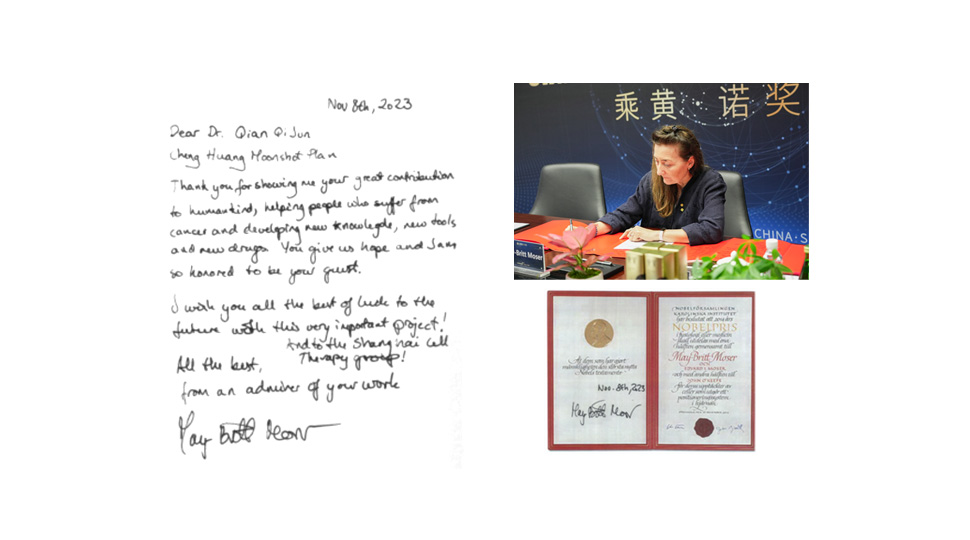 Nov 8th, 2023
Dear Dr. Qian Qi Jun
Cheng Huang Moonshot Plan
Thank you for showing me your great contribution
to humankind, helping people who suffer from
cancer and developing new knowlegde, new tools
and new drugs. You give us hope and I am
so honored to be your guest.
I wish you all the best of luck to the
future with this very important project!
And to the Shanghai Cell
Therapy group!
All the best,
from an admirer of your work
May-Britt Moser
乘黄 诺奖
CHINA·S
-Britt Moser
Nov. 8th, 2023
May-Britt Moser
NOBELFÖRSAMLINGEN
KAROLINSKA INSTITUTET
har beslutat att
NOBELPRIS
May-Britt Moser
och
EDVARD I. MOSER
och med andra hälften till
JOHN O'KEEFE
för deras upptäckter av
celler som utgör ett
positioneringssystem
i hjärnan